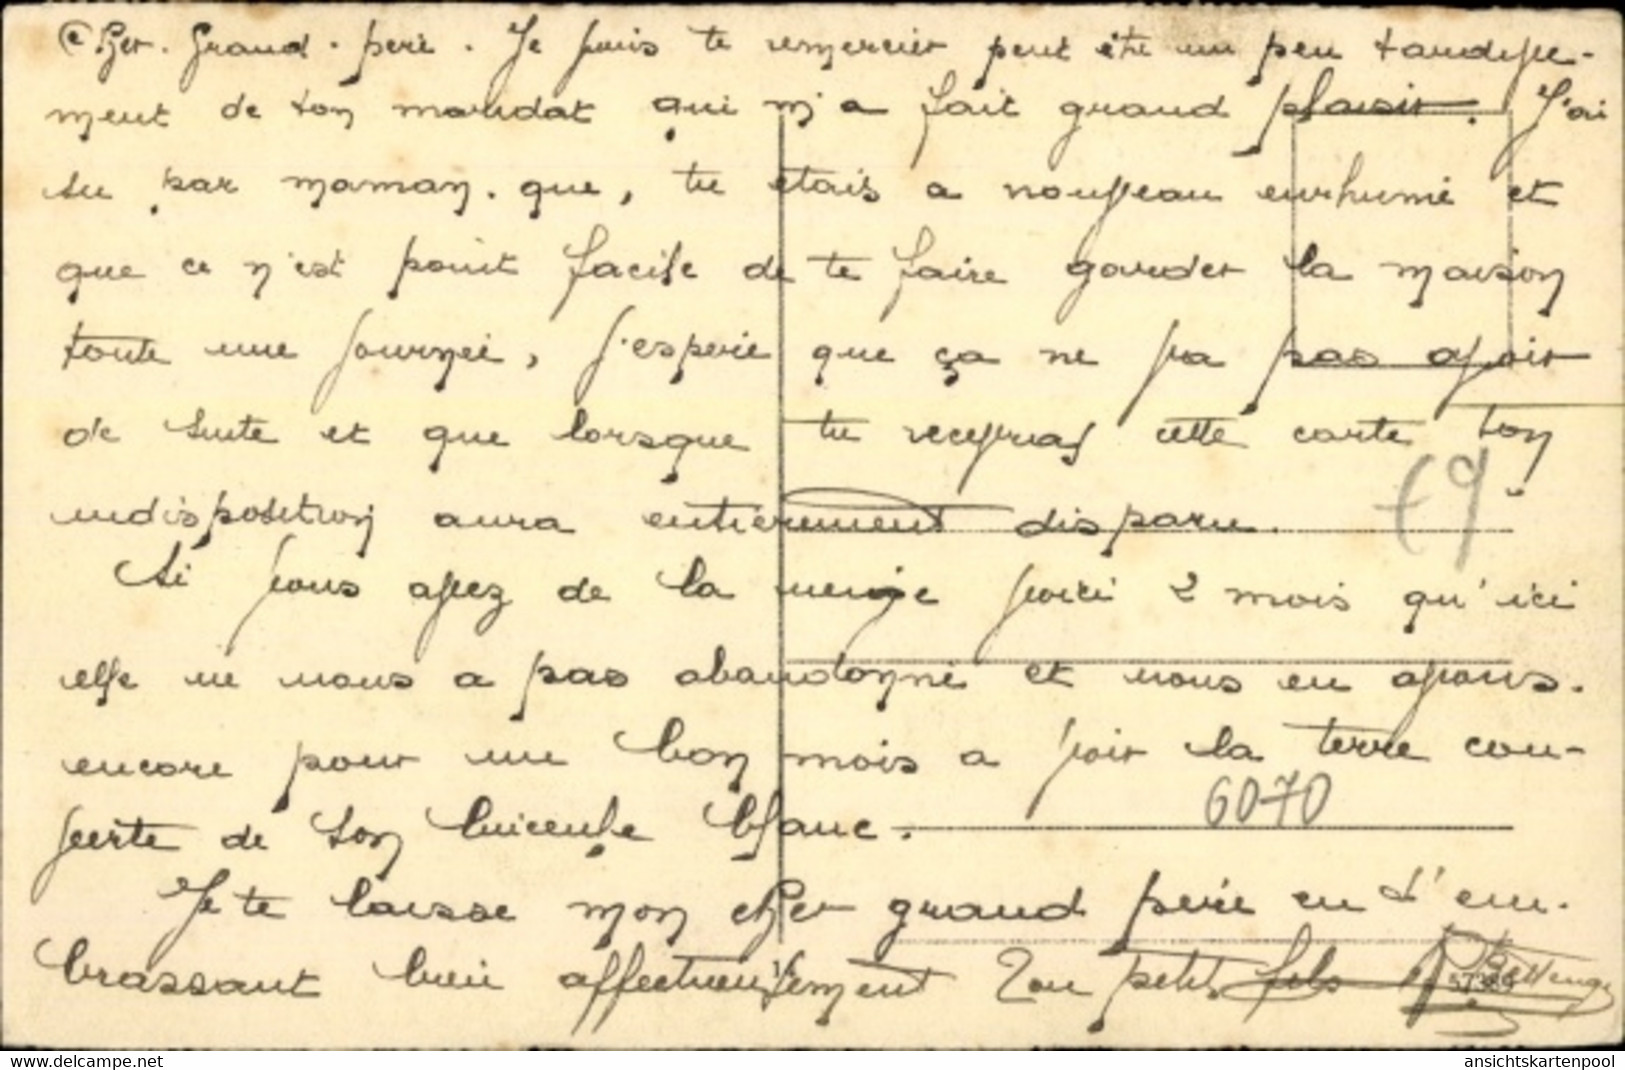 Cher. Grand. père. Je puis te remercier peut être un peu tardive-
ment de ton mandat qui m'a fait grand plaisir. J'ai
su par maman. que, tu étais a nouveau enrhumé et
que ce n'est point facile de te faire garder la maison
toute une journée, j'espère que ça ne va pas avoir
de suite et que lorsque tu recevras cette carte ton
indisposition aura entièrement disparu.
Si vous avez de la neige voici 2 mois qu'ici
elle ne nous a pas abandonné et nous en avons.
encore pour un bon mois a voir la terre cou-
verte de son linceule blanc.
6070
Je te laisse mon cher grand père en t'em-
brassant bien affectueusement Ton petit fils
ansichtskartenpool